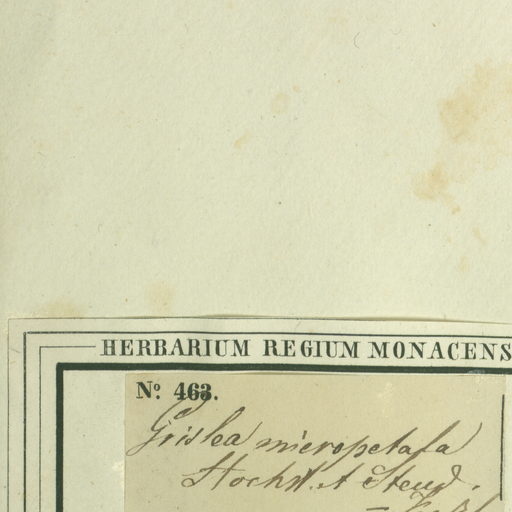 HERBARIUM REGIUM MONACENS
No. 463.
Grislea micropetala
Hochst. et Steud.